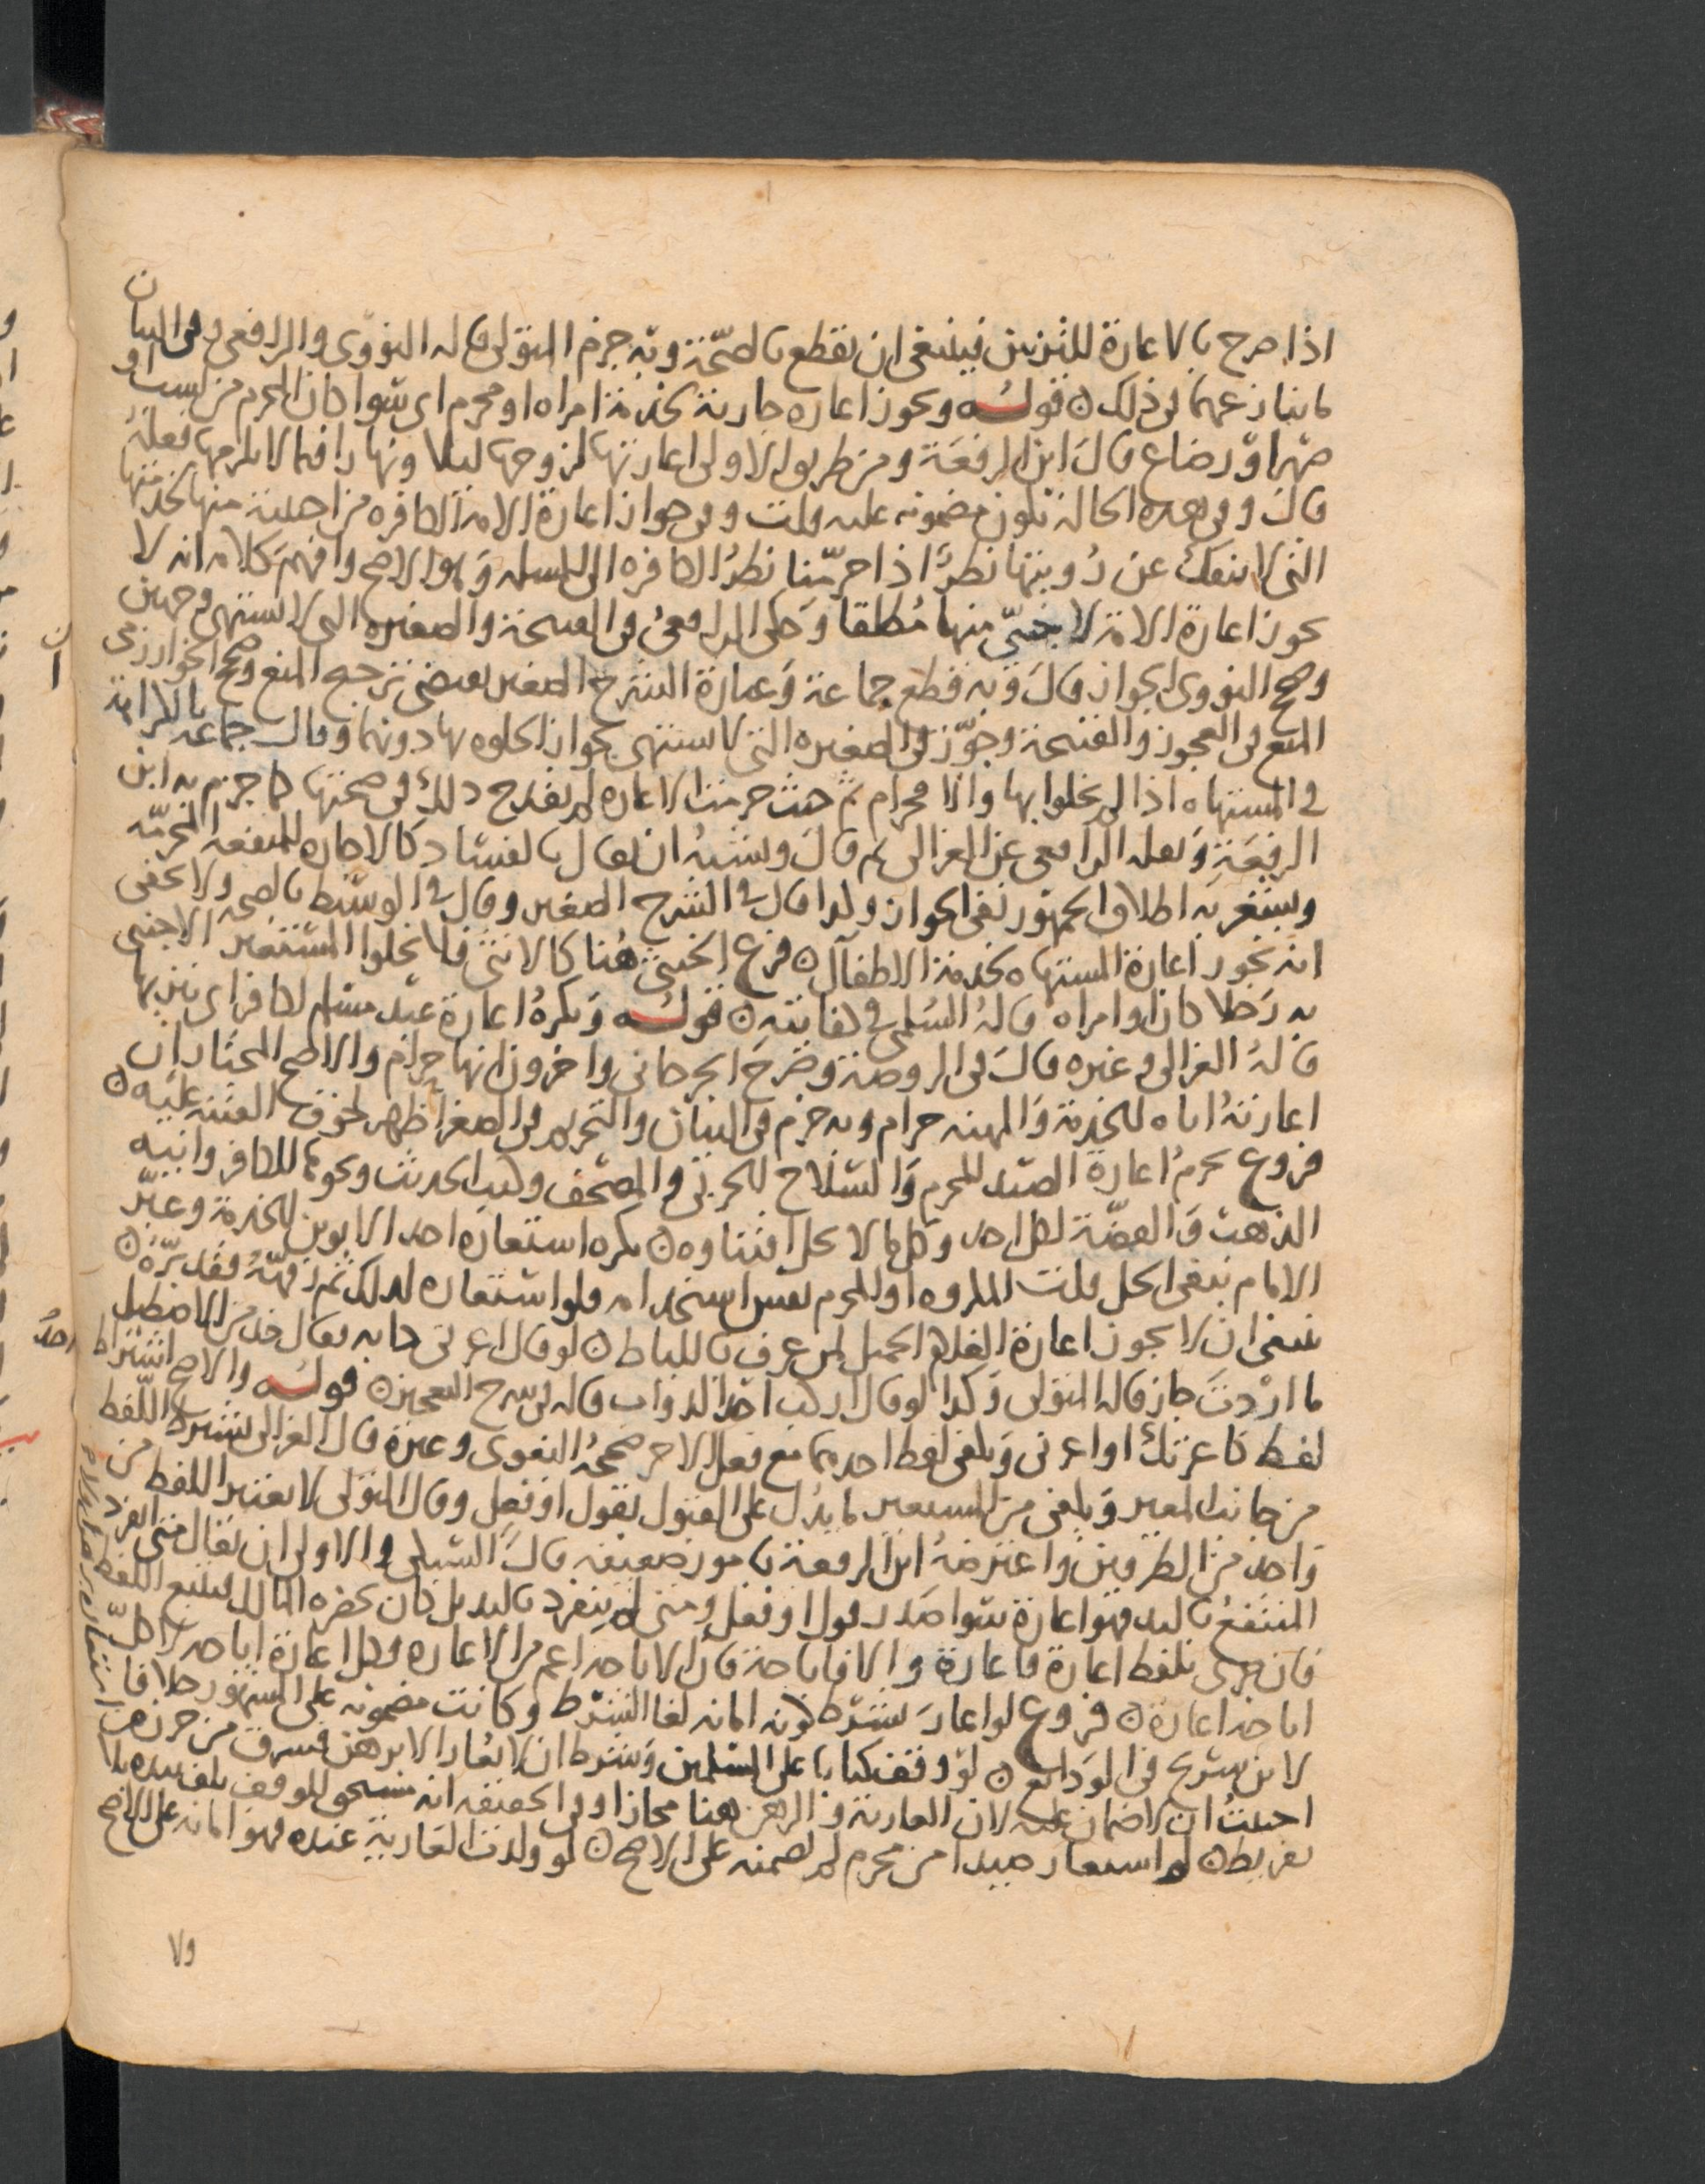 اذا صرح بالاعارة للتزيين فينبغي ان يقطع بالصحة وبه جزم المتولي قاله النووي والرافعي وفي البيان
ما ينازعهما في ذلك ن قوله ويجوز اعاره جارية لخدمة امراه او محرم اي سوا كان المحرم من نسب او
صهر او رضاع قال ابن الرفعة ومن طريق الاولى اعارتها لزوجها ليلا ونهارا فيما لا يلزمها فعله
قال وفي هذه الحالة تكون مضمونه عليه قلت وفي جواز اعارة الامة الكافره من اجنبية منها لخدمتها
التي لا ينفك عن رؤيتها نظر اذا حرمنا نظر الكافره الى المسلمه وهو الاصح وافهم كلامه انه لا
يجوز اعارة الامة لاجنبي منها مطلقا وحكى الرافعي في القبيحة والصغيره التي لا تشتهى وجهين
وصحح النووي الجواز قال وبه قطع جماعة وعبارة الشرح الصغير يقتضي ترجيح المنع وصحح الخوارزمي
المنع في العجوز والقبيحة وجوز في الصغيره التي لا تشتهى لجواز الخلوه بها دونهما وقال جماعه بالكراهة
في المشتهاه اذا لم يخلوا بها والا فحرام ثم حيث حرمت الاعاره لم يقدح ذلك في صحتها كما جزم به ابن
الرفعة ونقله الرافعي عن الغزالي ثم قال ويشبه ان يقال بالفساد كالاجاره للمنفعه المحرمه
ويشعر به اطلاق الجمهور نفي الجواز ولذا قال في الشرح الصغير وقال في الوسيط بالصحه ولا يخفى
انه تجوز اعارة المشتهاه لخدمة الاطفال ن فرع الخنثى هنا كالانثى فلا يخلوا المستعير الاجنبي
به رجلا كان او امراه قاله السلمي في كفايته ن قوله ويكره اعارة عبد مسلم لكافر اي تنزيها
قاله الغزالي وغيره قال في الروضة وصرح الجرجاني واخرون انها حرام والاصح المختار ان
اعارته اياه للخدمة والمهنه حرام وبه جزم في البيان والتحرير وفي الصغر اظهر لخوف الفتنه عليه ن
فروع يحرم اعارة الصيد للمحرم والسلاح للحربي والمصحف وكتب الحديث ونحوهما للكافر وانيه
الذهب والفضة لكل احد وكل ما لا يحل اقتناوه ن يكره استعاره احد الابوين للخدمة وعبر
الامام بنفي الحل قلت المكروه او المحرم نفس استخدامه فلو استعاره لذلك ثم رفهه فقد بره ن
ينبغي ان لا يجوز اعارة الغلام الجميل لمن عرف باللياط ن لو قال اعرني دابه فقال خذ من الاصطبل
ما اردت جاز قاله المتولي وكذا لو قال اركب احد الدواب قاله في شرح التعجيز ن قوله والاصح اشتراط
لفظ كاعرتك او اعرني ويكفي لفظ احدهما مع فعل الاخر صححه البغوي وغيره قال الغزالي يشترط اللفظ
من جانب المعير ويكفي من المستعير ما يدل على القبول بقول او فعل وقال المتولي لا يعتبر اللفظ من
واحد من الطرفين واعترضه ابن الرفعة بامور ضعيفه قال السبكي والاولى ان يقال متى انفرد
المنتفع باليد فهو اعارة سوا صدر قول او فعل ومتى لم ينفرد باليد بل كان بحضره المالك فيتبع اللفظ
فان جرى بلفظ اعارة فاعارة والا فاباحة فاذا الاباحه اعم من الاعاره وكل اعارة اباحه لا كل
اباحه اعارة ن فروع لو اعار بشرط كونه امانه لغا الشرط وكانت مضمونه على المشهور خلافا
لابن سريج في الودائع ن لو وقف كتابا على المسلمين وشرط ان لا يعار الا برهن فسرق من حرزه
اجبت ان لا ضمان عليه لان العارية والرهن هنا مجاز وفي الحقيقه انه مستحق للوقف يتلف بيده بلا
تفريط ن لو استعار صيدا من محرم لم يضمنه على الاصح ن لو ولدت العارية عنده فهو امانه على الاصح
ولا